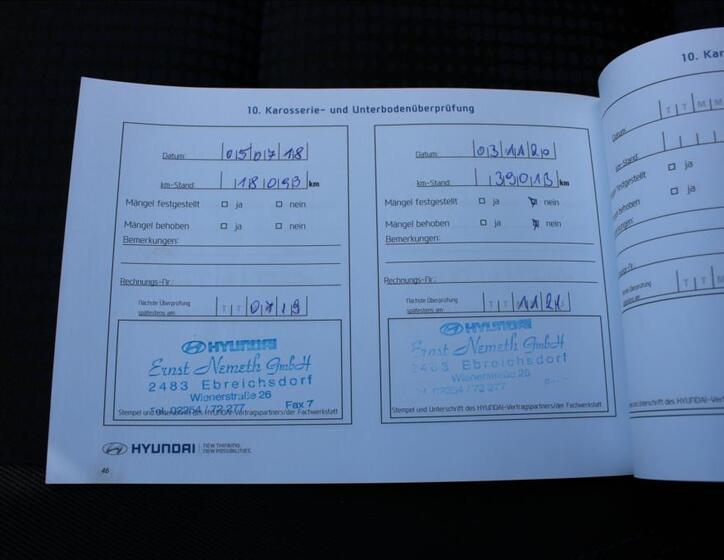 10. Karosserie- und Unterbodenüberprüfung
Datum: 05 07 18
km-Stand: 18093 km
Mängel festgestellt ja nein
Mängel behoben ja nein
Bemerkungen:
Rechnungs-Nr.:
Nächste Überprüfung
spätestens am: T T 07 19
HYUNDAI
Ernst Nemeth GmbH
2483 Ebreichsdorf
Wienerstraße 26
Tel. 02254 / 72 277 Fax 7
Stempel und Unterschrift des HYUNDAI-Vertragspartners/der Fachwerkstatt
Datum: 03 11 20
km-Stand: 39013 km
Mängel festgestellt ja nein
Mängel behoben ja nein
Bemerkungen:
Rechnungs-Nr.:
Nächste Überprüfung
spätestens am: T T 11 21
HYUNDAI
Ernst Nemeth GmbH
2483 Ebreichsdorf
Wienerstraße 26
02254 / 72 277
Stempel und Unterschrift des HYUNDAI-Vertragspartners/der Fachwerkstatt
HYUNDAI NEW THINKING.
NEW POSSIBILITIES.
46
10. Kar
Datum: T T M M
km-Stand:
festgestellt ja
behoben ja
T T M
des HYUNDAI-Vertragspar